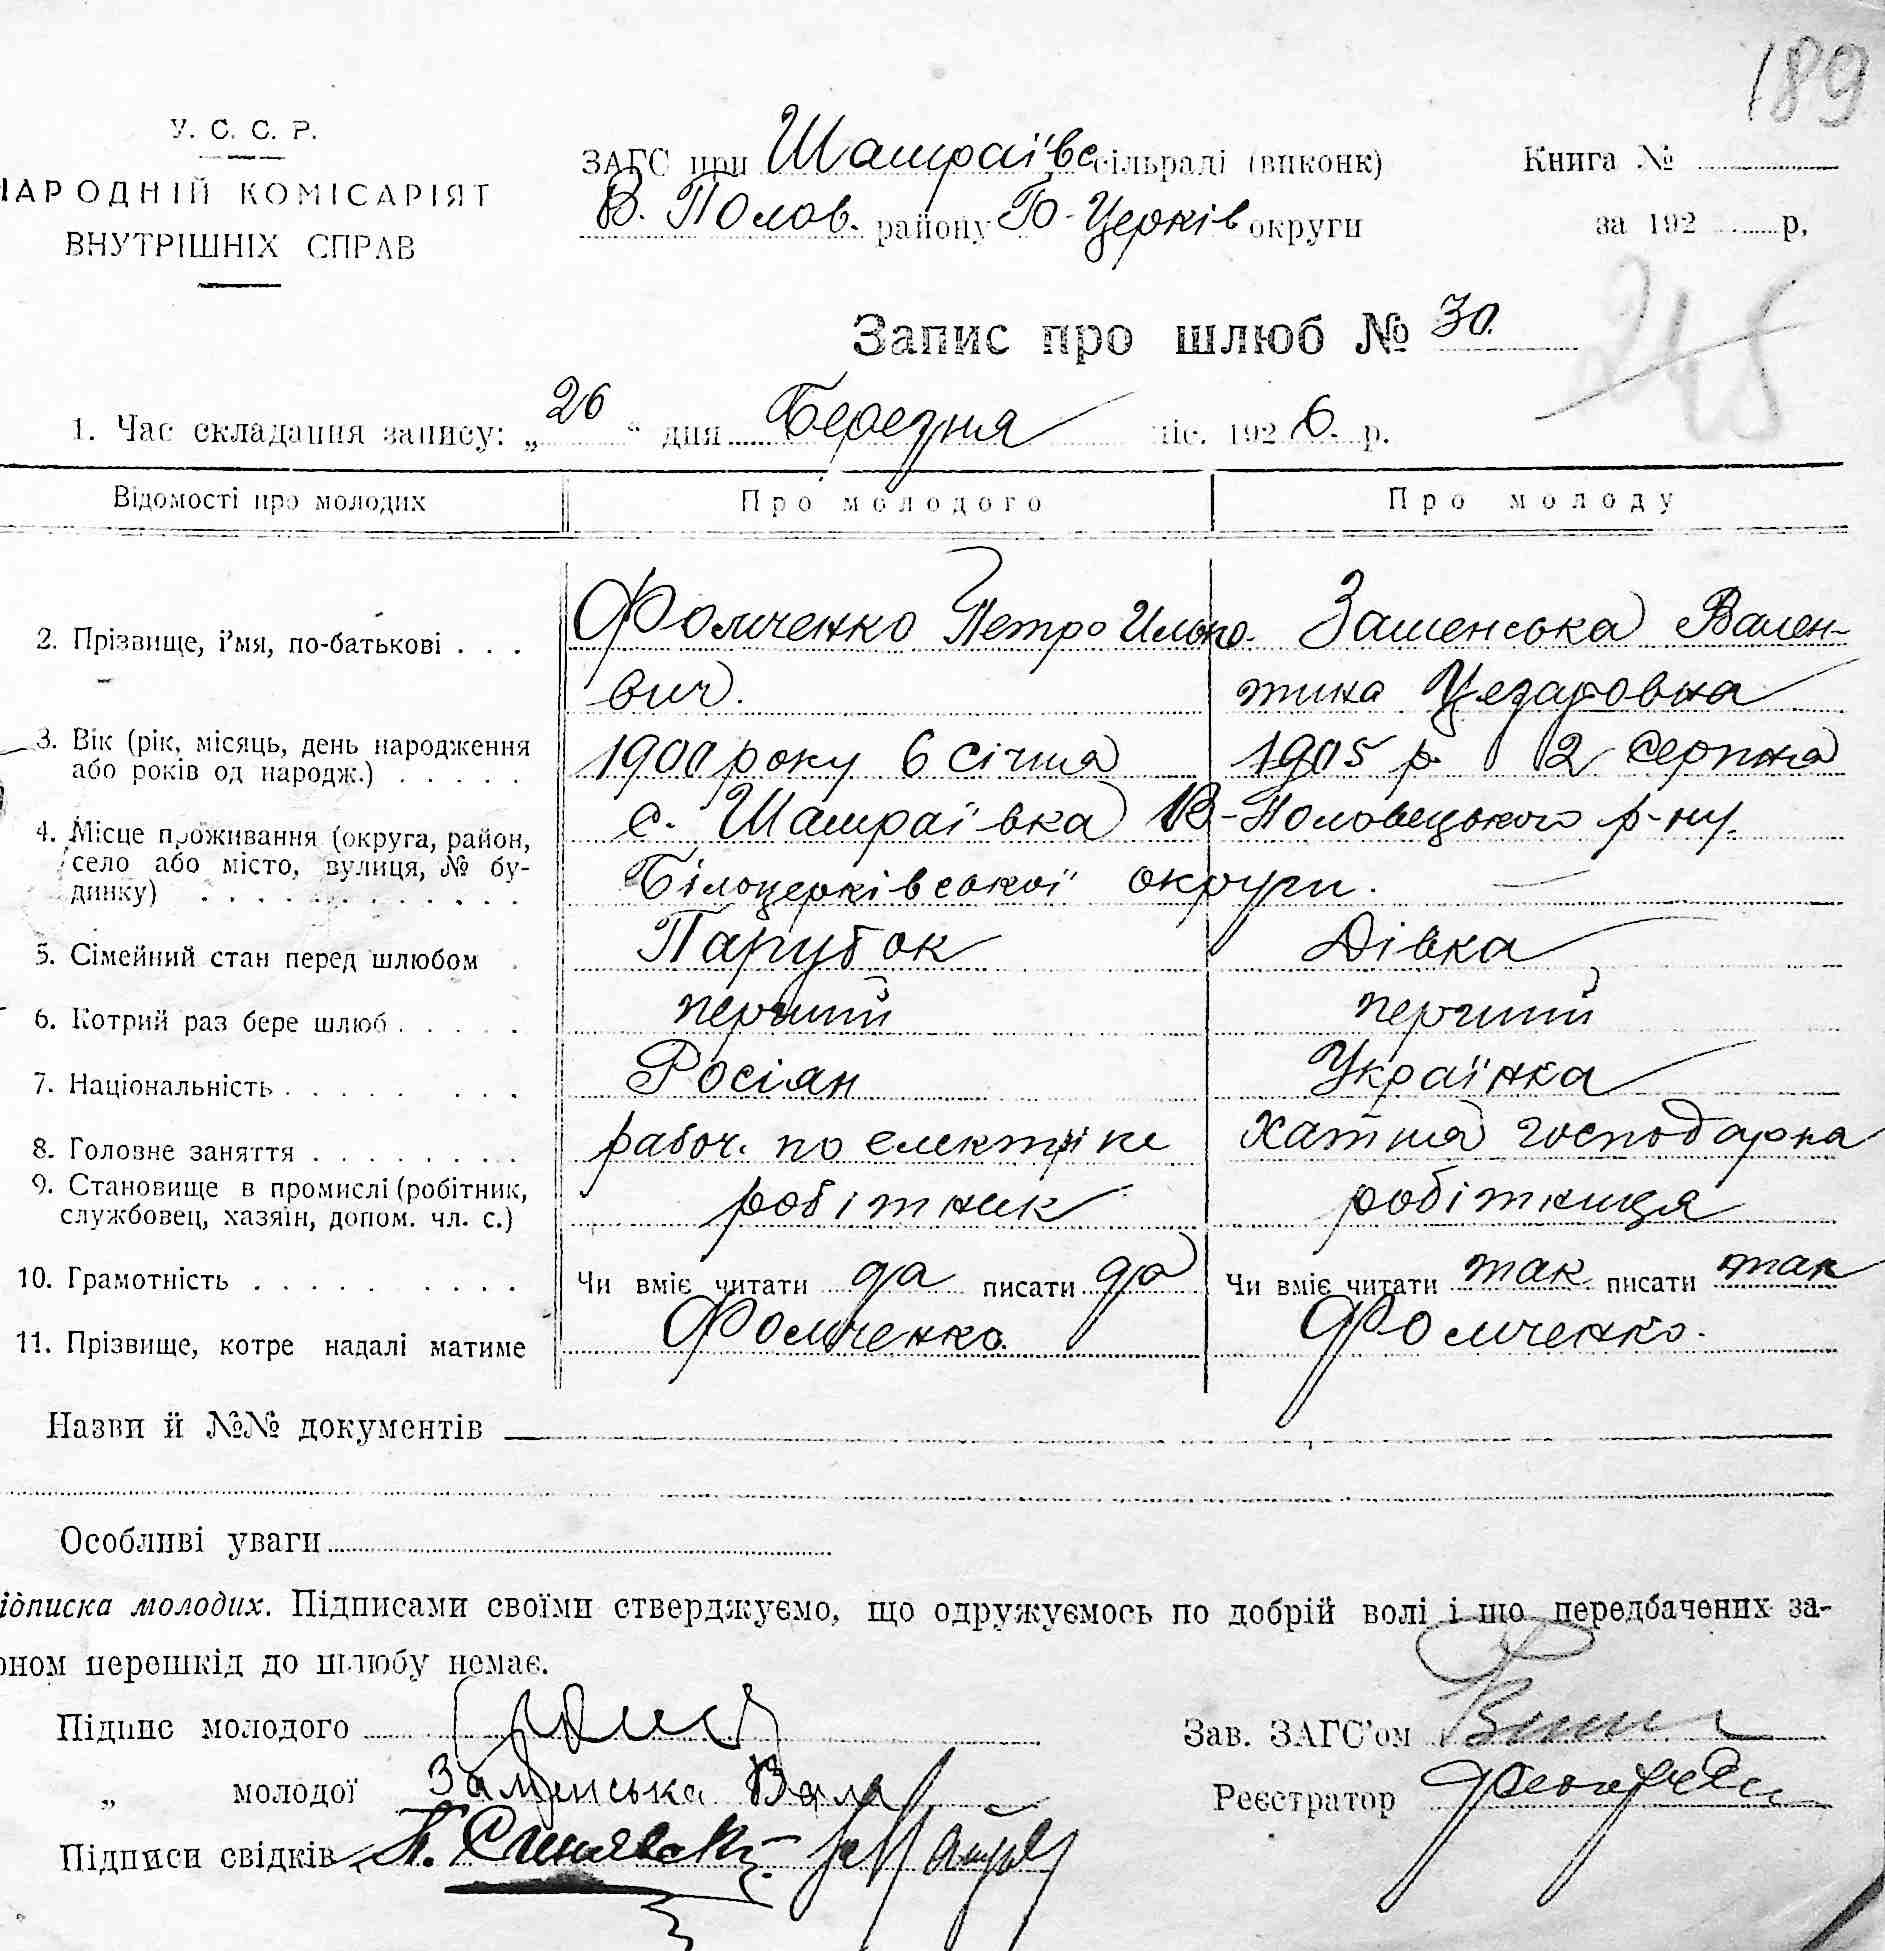 189
У. С. С. Р.
НАРОДНІЙ КОМІСАРІЯТ
ВНУТРІШНІХ СПРАВ
ЗАГС при Шамраївс сільраді (виконк)
Книга №
В. Полов. району Б-Церків округи
за 192 р.
Запис про шлюб № 30.
245
1. Час складання запису: „26“ дня Березня міс. 1926 р.
Відомості про молодих Про молодого Про молоду
2. Прізвище, і'мя, по-батькові . . . Фомченко Петро Илько- Заменська Вален-
вич. тина Цезаровна
3. Вік (рік, місяць, день народження 1900 року 6 січня 1905 р. 2 серпня
або років од народж.) . . . . .
4. Місце проживання (округа, район, с. Шамраївка В-Половецького р-ну.
село або місто, вулиця, № бу- Білоцерківської округи.
динку) . . . . . . . . . . . .
5. Сімейний стан перед шлюбом . Парубок Дівка
6. Котрий раз бере шлюб . . . . . перший перший
7. Національність . . . . . . . . Росіян Українка
8. Головне заняття . . . . . . . . рабоч. по електріке хатня господарка
9. Становище в промислі (робітник, робітник робітниця
службовец, хазяїн, допом. чл. с.)
10. Грамотність . . . . . . . . . . Чи вміє читати да писати да Чи вміє читати так писати так
11. Прізвище, котре надалі матиме Фомченко. Фомченко.
Назви й №№ документів
Особливі уваги
ідписка молодих. Підписами своїми стверджуємо, що одружуємось по добрій волі і що передбачених за-
оном перешкід до шлюбу немає.
Підпис молодого
Зав. ЗАГС'ом
„ молодої Заменська Валя
Реєстратор
Підписи свідків